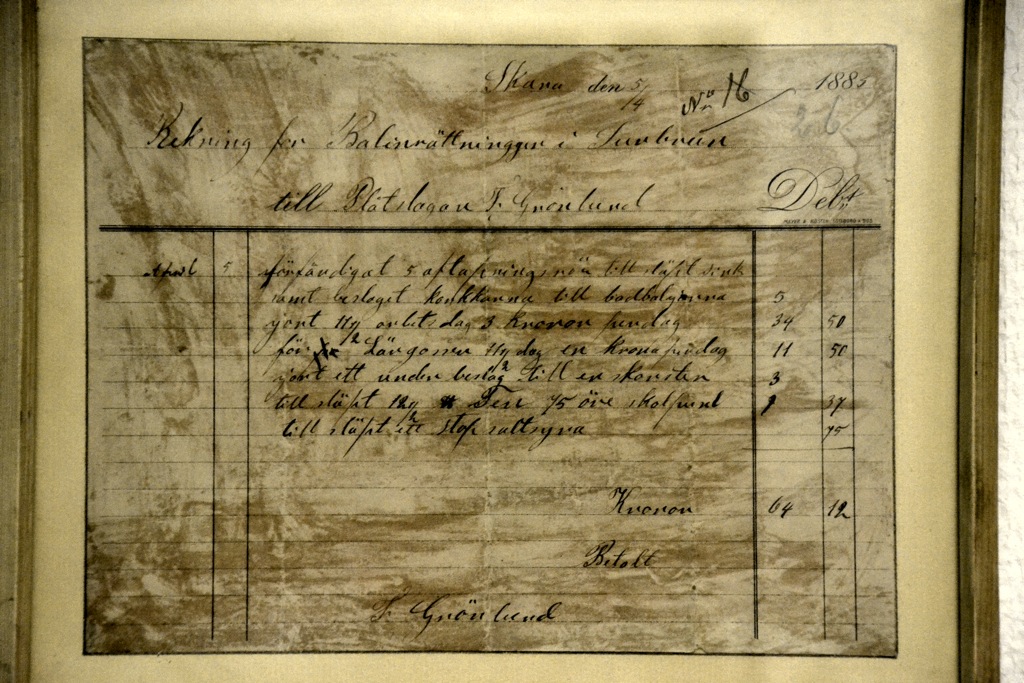 Skara den 5/14 No 16 1885
26
Rekning för Badinrättninggen i Lundsbrun
till Plåtslagan F. Grönlund Debt
April 5 förfärdigat 5 aftapningsrör till släpt zink
samt beslaget kankkarna till badbaljorna 5
gort 11 1/2 arbetsdag 3 Kronor pundag 34 50
för Lärgossen 11 1/2 dag en krona pundag 11 50
gort ett under beslag till en skorsten 3
till släpt Ten 75 öre skolpund 37
till släpt ett stop saltsyra 75
Kronor 64 12
Betalt
F. Grönlund